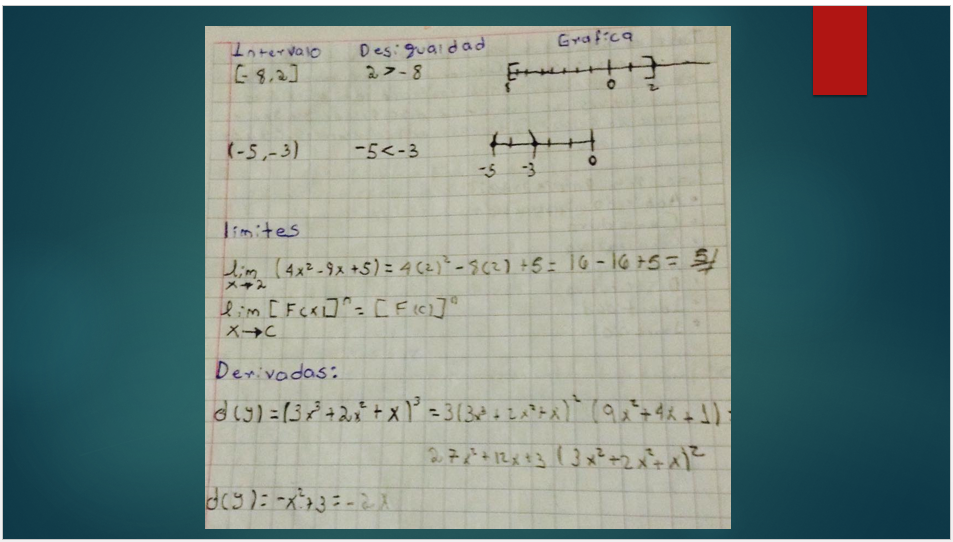 Intervalo Desigualdad Grafica
[-8,2] 2>-8
8 0 2
(-5,-3) -5<-3
-5 -3 0
limites
lim (4x²-8x+5)=4(2)²-8(2)+5=16-16+5=5//
x→2
lim [F(x)]ⁿ=[F(c)]ⁿ
x→c
Derivadas:
d(y)=(3x³+2x²+x)³=3(3x³+2x²+x)²(9x²+4x+1)=
27x²+12x+3(3x²+2x²+x)²
d(y)=-x²+3=-2x